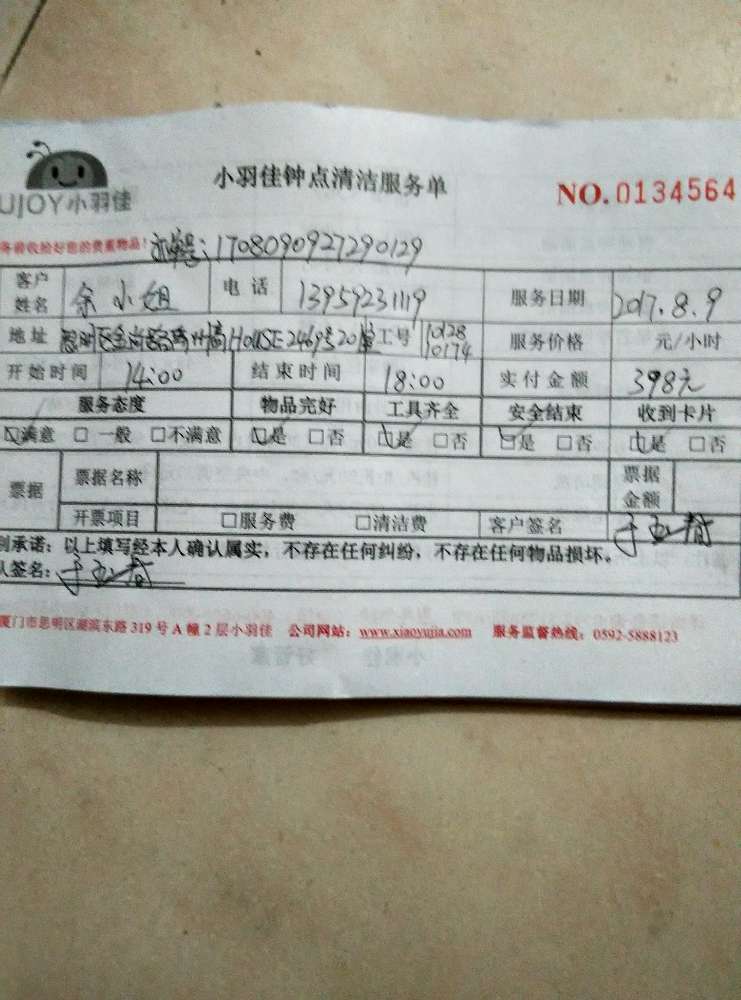 小羽佳钟点清洁服务单
NO.0134564
UJOY小羽佳
务请收拾好您的贵重物品! 订单号:1708090927290129
客户姓名 余小姐 电话 13959231119 服务日期 2017.8.9
地址 思明区 HOUSE 2469号20 工号 10128 10174 服务价格 元/小时
开始时间 14:00 结束时间 18:00 实付金额 398元
服务态度 物品完好 工具齐全 安全结束 收到卡片
☑满意 □一般 □不满意 ☑是 □否 ☑是 □否 ☑是 □否 ☑是 □否
票据 票据名称 票据金额
开票项目 □服务费 □清洁费 客户签名
别承诺:以上填写经本人确认属实,不存在任何纠纷,不存在任何物品损坏。
人签名:
厦门市思明区湖滨东路319号A幢2层小羽佳 公司网站:www.xiaoyujia.com 服务监督热线:0592-5888123